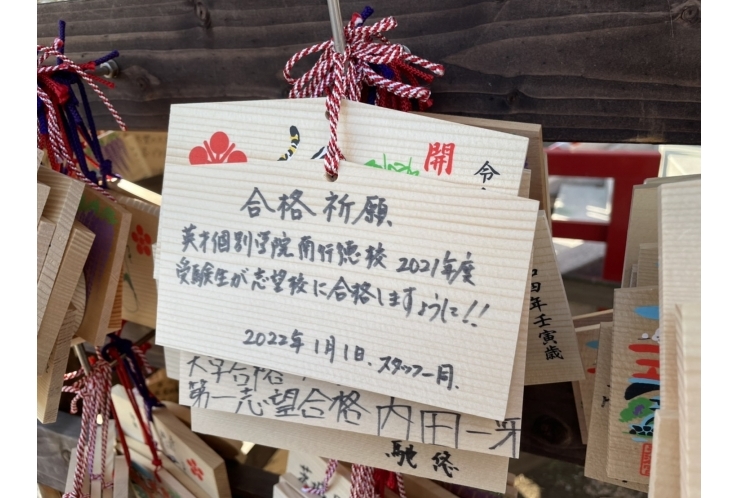 開
令
合格祈願
英才個別学院南行徳校 2021年度
受験生が志望校に合格しますように!!
2022年1月1日. スタッフ一同.
四年壬寅歳
大学合格
第一志望合格 内田一